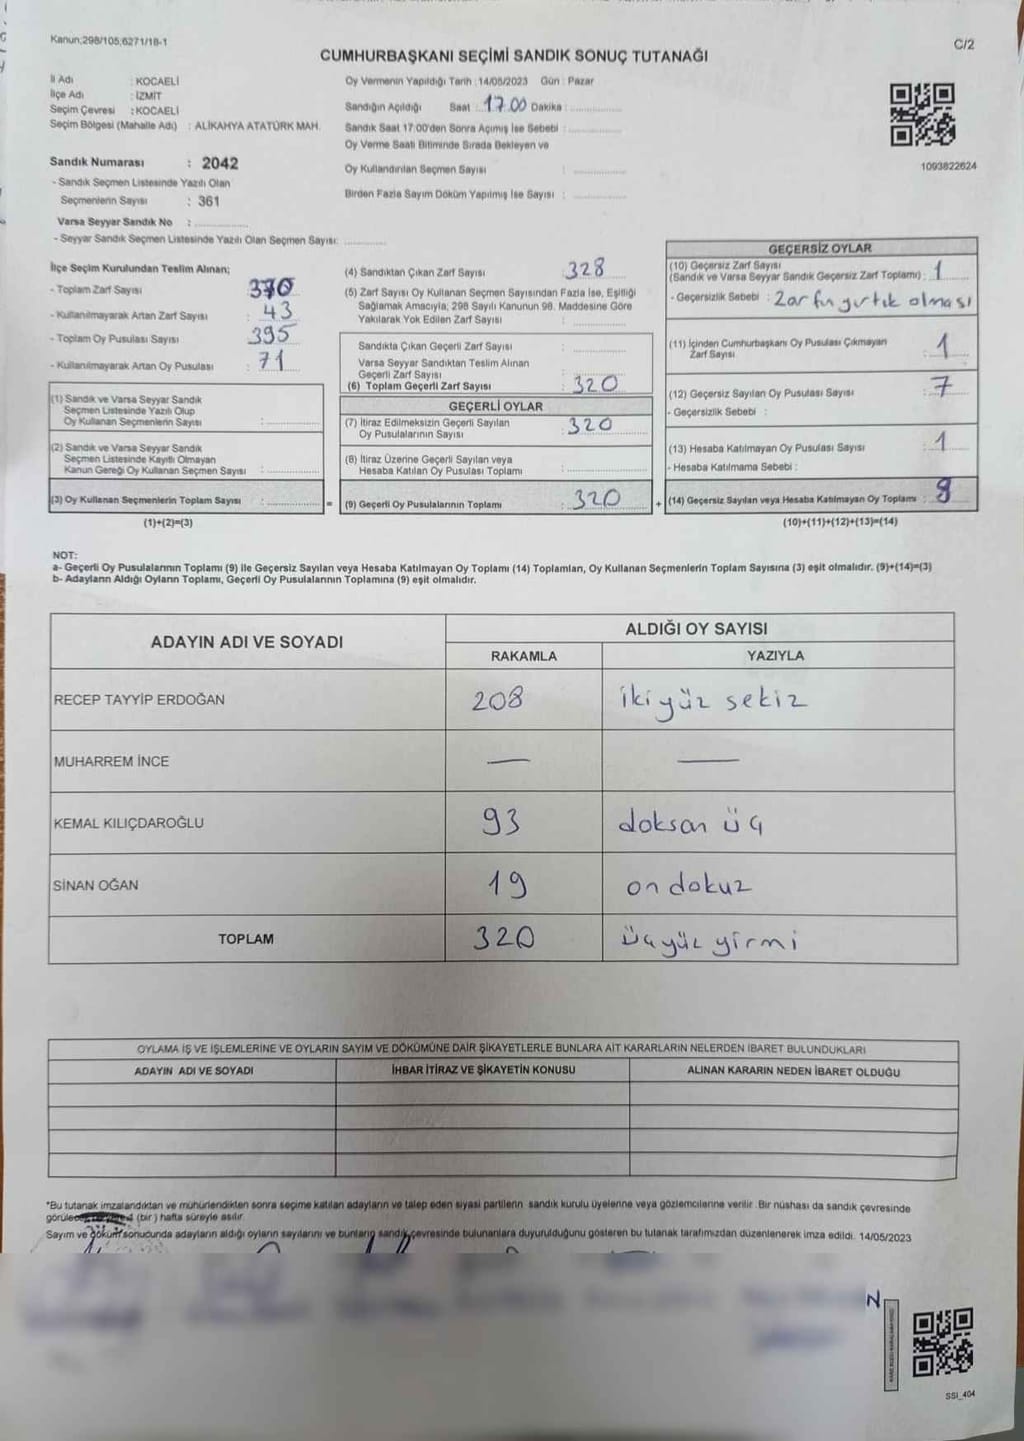 Kanun;298/105;6271/18-1
C/2
CUMHURBAŞKANI SEÇİMİ SANDIK SONUÇ TUTANAĞI
İl Adı : KOCAELİ
İlçe Adı : İZMİT
Seçim Çevresi : KOCAELİ
Seçim Bölgesi (Mahalle Adı) : ALİKAHYA ATATÜRK MAH.
Sandık Numarası : 2042
- Sandık Seçmen Listesinde Yazılı Olan
Seçmenlerin Sayısı : 361
Varsa Seyyar Sandık No :
- Seyyar Sandık Seçmen Listesinde Yazılı Olan Seçmen Sayısı:
Oy Vermenin Yapıldığı Tarih :14/05/2023 Gün : Pazar
Sandığın Açıldığı Saat : 17.00 Dakika :
Sandık Saat 17:00'den Sonra Açımış İse Sebebi :
Oy Verme Saati Bitiminde Sırada Bekleyen ve
Oy Kullandırılan Seçmen Sayısı :
Birden Fazla Sayım Döküm Yapılmış İse Sayısı :
1093822624
İlçe Seçim Kurulundan Teslim Alınan;
- Toplam Zarf Sayısı : 370
- Kullanılmayarak Artan Zarf Sayısı : 43
- Toplam Oy Pusulası Sayısı : 395
- Kullanılmayarak Artan Oy Pusulası : 71
(1) Sandık ve Varsa Seyyar Sandık
Seçmen Listesinde Yazılı Olup
Oy Kullanan Seçmenlerin Sayısı :
(2) Sandık ve Varsa Seyyar Sandık
Seçmen Listesinde Kayıtlı Olmayan
Kanun Gereği Oy Kullanan Seçmen Sayısı :
(3) Oy Kullanan Seçmenlerin Toplam Sayısı :
=
(1)+(2)=(3)
(4) Sandıktan Çıkan Zarf Sayısı : 328
(5) Zarf Sayısı Oy Kullanan Seçmen Sayısından Fazla İse, Eşitliği
Sağlamak Amacıyla; 298 Sayılı Kanunun 98. Maddesine Göre
Yakılarak Yok Edilen Zarf Sayısı :
Sandıkta Çıkan Geçerli Zarf Sayısı :
Varsa Seyyar Sandıktan Teslim Alınan
Geçerli Zarf Sayısı :
(6) Toplam Geçerli Zarf Sayısı : 320
GEÇERLİ OYLAR
(7) İtiraz Edilmeksizin Geçerli Sayılan
Oy Pusulalarının Sayısı : 320
(8) İtiraz Üzerine Geçerli Sayılan veya
Hesaba Katılan Oy Pusulası Toplamı :
(9) Geçerli Oy Pusulalarının Toplamı : 320
+
GEÇERSİZ OYLAR
(10) Geçersiz Zarf Sayısı
(Sandık ve Varsa Seyyar Sandık Geçersiz Zarf Toplamı) : 1
- Geçersizlik Sebebi : Zarfın yırtık olması
(11) İçinden Cumhurbaşkanı Oy Pusulası Çıkmayan
Zarf Sayısı : 1
(12) Geçersiz Sayılan Oy Pusulası Sayısı : 7
- Geçersizlik Sebebi :
(13) Hesaba Katılmayan Oy Pusulası Sayısı : 1
- Hesaba Katılmama Sebebi :
(14) Geçersiz Sayılan veya Hesaba Katılmayan Oy Toplamı :
(10)+(11)+(12)+(13)=(14)
NOT:
a- Geçerli Oy Pusulalarının Toplamı (9) ile Geçersiz Sayılan veya Hesaba Katılmayan Oy Toplamı (14) Toplamları, Oy Kullanan Seçmenlerin Toplam Sayısına (3) eşit olmalıdır. (9)+(14)=(3)
b- Adayların Aldığı Oyların Toplamı, Geçerli Oy Pusulalarının Toplamına (9) eşit olmalıdır.
ADAYIN ADI VE SOYADI
ALDIĞI OY SAYISI
RAKAMLA YAZIYLA
RECEP TAYYİP ERDOĞAN 208 iki yüz sekiz
MUHARREM İNCE — —
KEMAL KILIÇDAROĞLU 93 doksan üç
SİNAN OĞAN 19 on dokuz
TOPLAM 320 üç yüz yirmi
OYLAMA İŞ VE İŞLEMLERİNE VE OYLARIN SAYIM VE DÖKÜMÜNE DAİR ŞİKAYETLERLE BUNLARA AİT KARARLARIN NELERDEN İBARET BULUNDUKLARI
ADAYIN ADI VE SOYADI İHBAR İTİRAZ VE ŞİKAYETİN KONUSU ALINAN KARARIN NEDEN İBARET OLDUĞU
*Bu tutanak imzalandıktan ve mühürlendikten sonra seçime katılan adayların ve talep eden siyasi partilerin sandık kurulu üyelerine veya gözlemcilerine verilir. Bir nüshası da sandık çevresinde
(bir) hafta süreyle asılır.
Sayım ve döküm sonucunda adayların aldığı oyların sayılarını ve bunların sandık çevresinde bulunanlara duyurulduğunu gösteren bu tutanak tarafımızdan düzenlenerek imza edildi. 14/05/2023
N
SSI_404